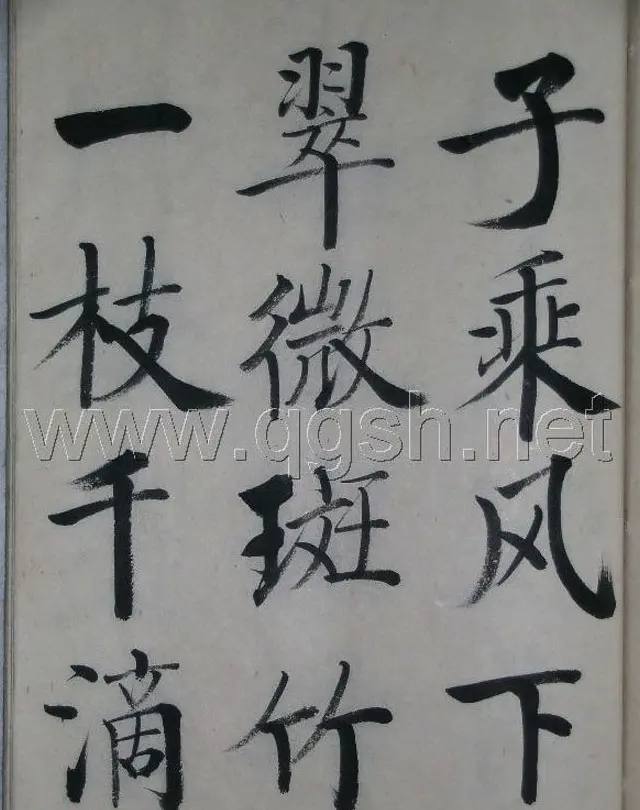 子乘风下
翠微斑竹
一枝千滴
www.qgsh.net